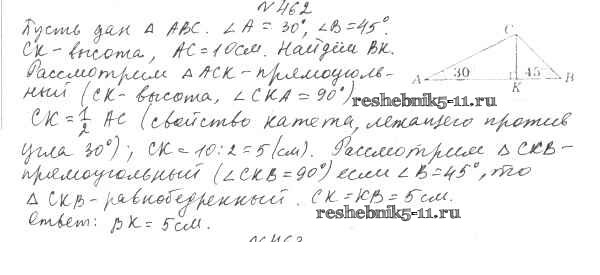 №462
Пусть дан △ ABC. ∠A = 30°, ∠B = 45°.
CK - высота, AC = 10 см. Найдём BK.
Рассмотрим △ ACK - прямоуголь-
ный (CK - высота, ∠CKA = 90°)
CK = 1/2 AC (свойство катета, лежащего против
угла 30°); CK = 10:2 = 5 (см). Рассмотрим △ CKB -
прямоугольный (∠CKB = 90°) если ∠B = 45°, то
△ CKB - равнобедренный. CK = KB = 5 см.
Ответ: BK = 5 см.
C
A 30 45 B
K
reshebnik5-11.ru
reshebnik5-11.ru
№463